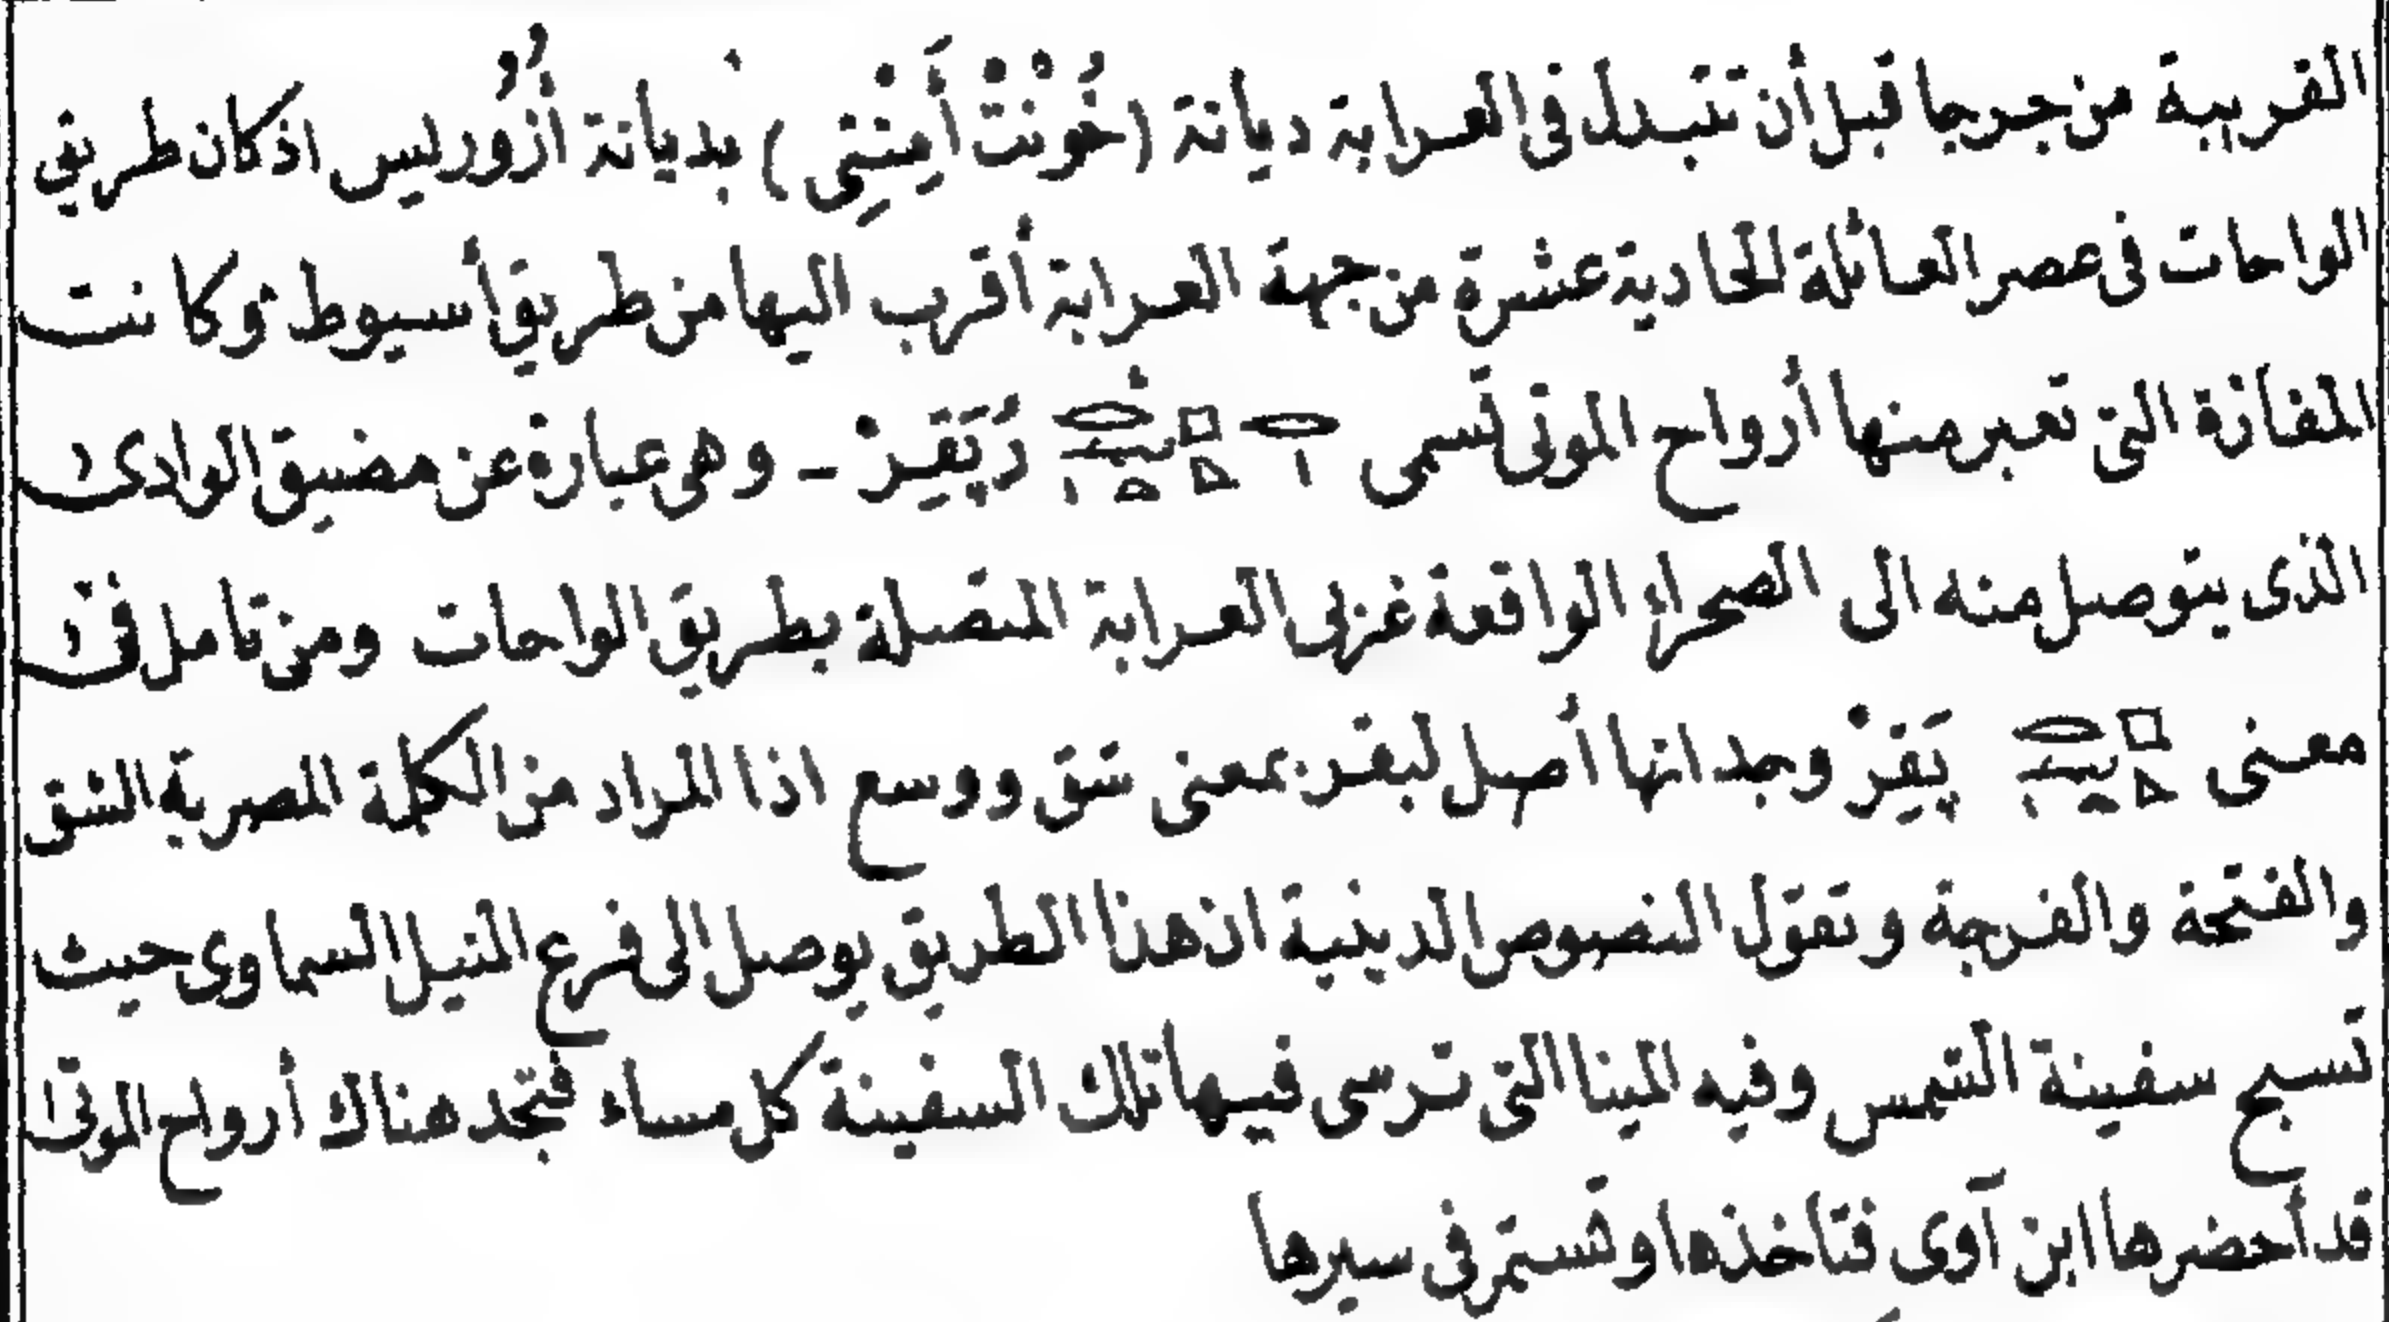 القريبة من جرجا قبل أن تتبدل فى العرابة ديانة (خُونْتْ أَمِنْتِى) بديانة أُزُورليس اذ كان طريق
الواحات فى عصر العائلة الحادية عشرة من جهة العرابة أقرب اليها من طريق أسيوط وكانت
المفازة التى تعبر منها أرواح الموتى تسمى رُپَقِرْ - وهى عبارة عن مضيق الوادى
الذى يتوصل منه الى الصحراء الواقعة غربى العرابة المتصلة بطريق الواحات ومن تأمل فى
معنى پَقِرْ وجد انها أصل لبقر بمعنى شق ووسع اذا المراد من الكلمة المصرية الشق
والفتحة والفرجة وتقول النصوص الدينية ان هذا الطريق يوصل الى فرع النيل السماوى حيث
تسبح سفينة الشمس وفيه المينا التى ترسى فيها تلك السفينة كل مساء فتجد هناك أرواح الموتى
قد أحضرها ابن آوى فتاخذها وتستمر فى سيرها